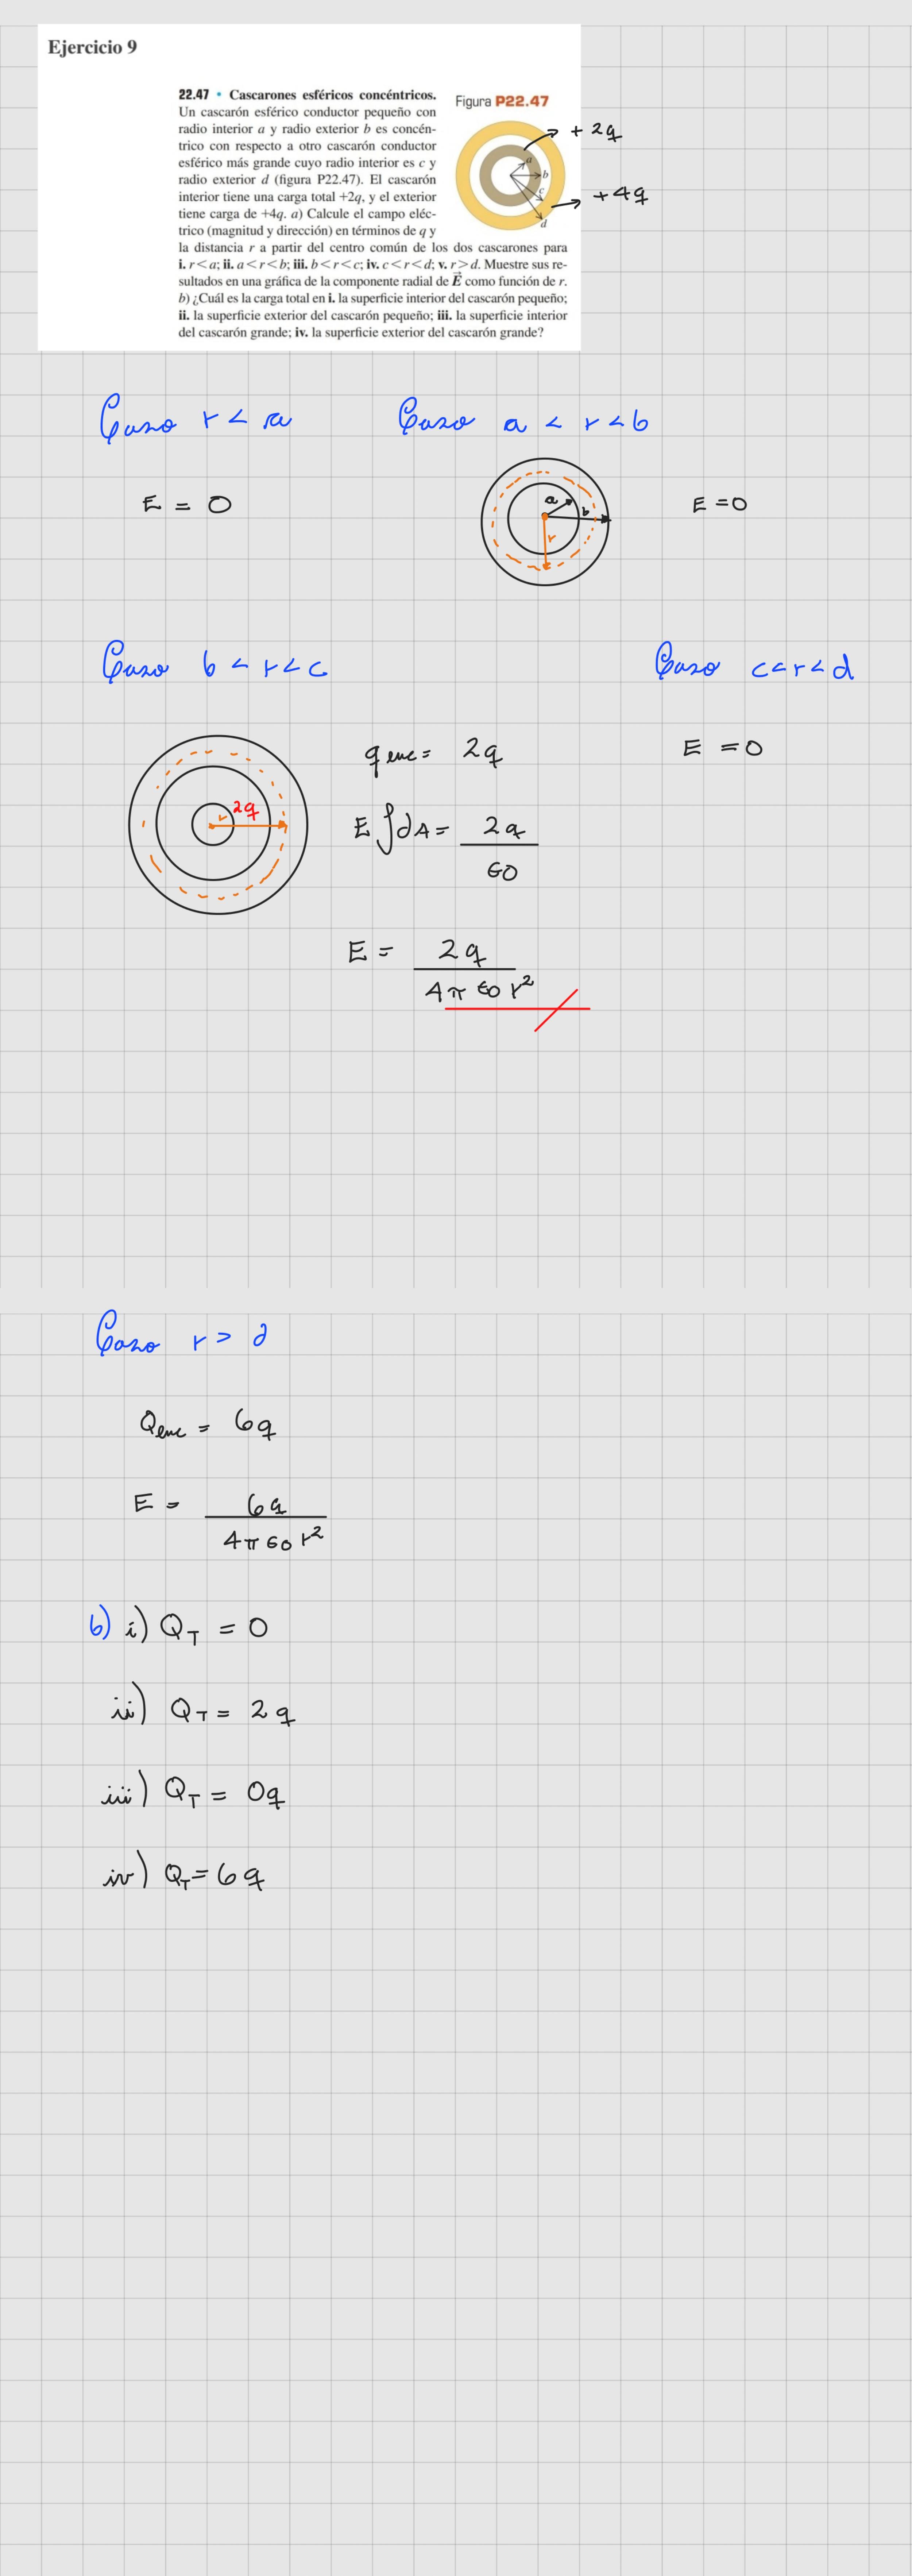 Ejercicio 9
22.47 • Cascarones esféricos concéntricos.
Un cascarón esférico conductor pequeño con
radio interior a y radio exterior b es concén-
trico con respecto a otro cascarón conductor
esférico más grande cuyo radio interior es c y
radio exterior d (figura P22.47). El cascarón
interior tiene una carga total +2q, y el exterior
tiene carga de +4q. a) Calcule el campo eléc-
trico (magnitud y dirección) en términos de q y
la distancia r a partir del centro común de los dos cascarones para
i. r < a; ii. a < r < b; iii. b < r < c; iv. c < r < d; v. r > d. Muestre sus re-
sultados en una gráfica de la componente radial de E⃗ como función de r.
b) ¿Cuál es la carga total en i. la superficie interior del cascarón pequeño;
ii. la superficie exterior del cascarón pequeño; iii. la superficie interior
del cascarón grande; iv. la superficie exterior del cascarón grande?
Figura P22.47
a
b
c
d
+ 2q
+4q
Caso r < a
E = 0
Caso a < r < b
a
b
r
E = 0
Caso b < r < c
r
2q
q enc = 2q
E ∫ dA = 2q / ϵ0
E = 2q / 4π ϵ0 r²
Caso c < r < d
E = 0
Caso r > d
Qenc = 6q
E = 6q / 4π ϵ0 r²
b) i) QT = 0
ii) QT = 2q
iii) QT = 0q
iv) QT = 6q